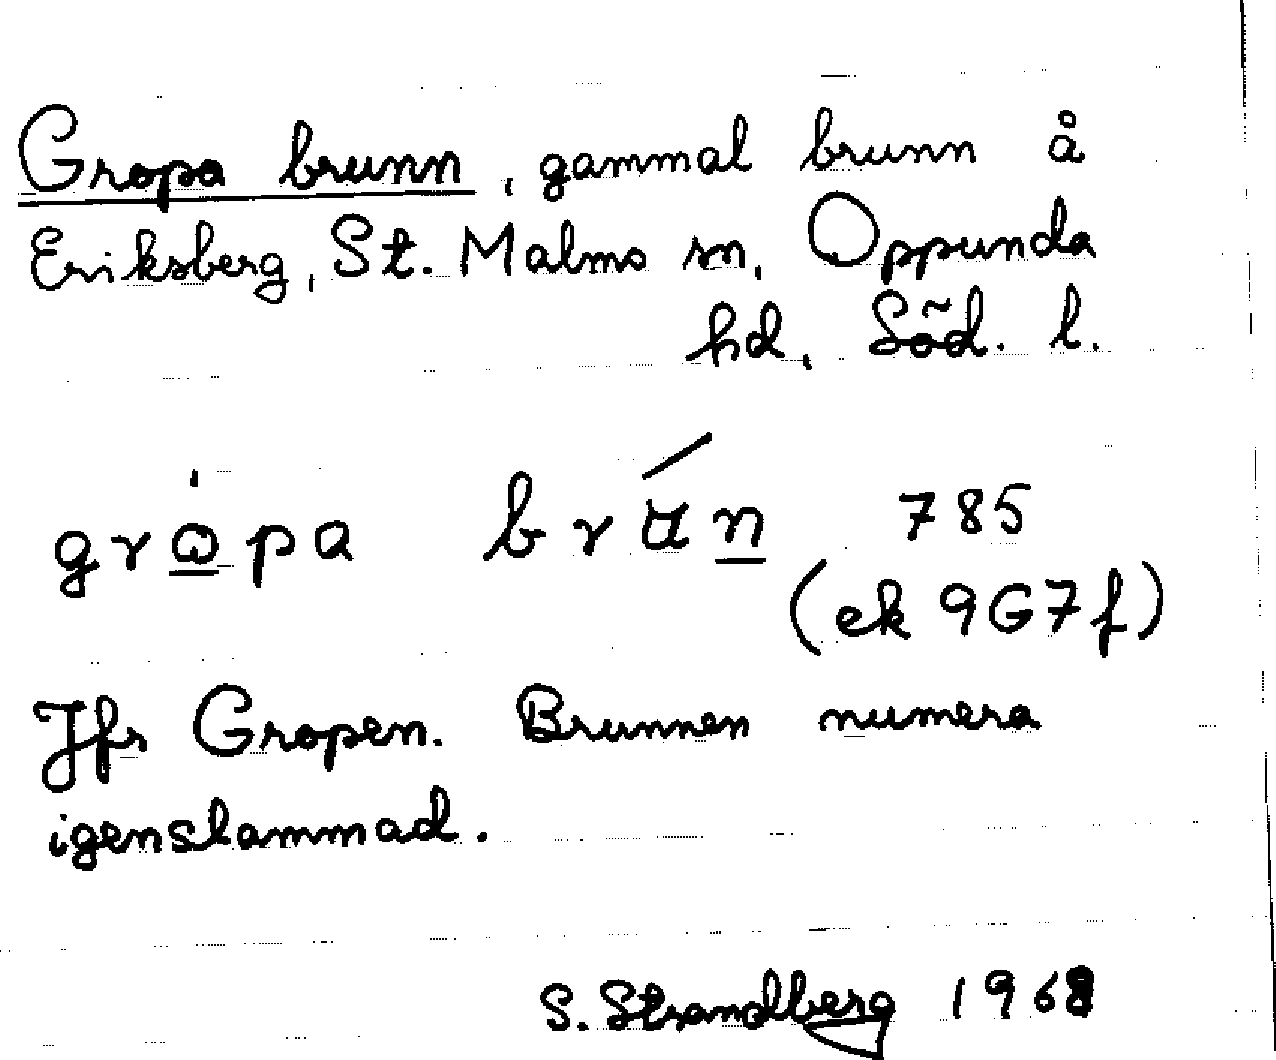 Gropa brunn, gammal brunn å
Eriksberg, St. Malms sn, Oppunda
hd, Söd. l.
grò̱pa brúṉ 785
(ek 9G7f)
Jfr Gropen. Brunnen numera
igenslammad.
S. Strandberg 1968